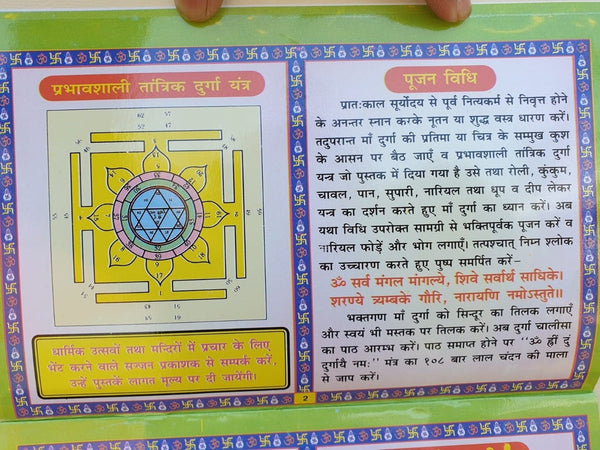 प्रभावशाली तांत्रिक दुर्गा यंत्र
धार्मिक उत्सवों तथा मन्दिरों में प्रचार के लिए
भेंट करने वाले सज्जन प्रकाशक से सम्पर्क करें,
उन्हें पुस्तकें लागत मूल्य पर दी जायेंगी।
पूजन विधि
प्रातःकाल सूर्योदय से पूर्व नित्यकर्म से निवृत्त होने
के अनन्तर स्नान करके नूतन या शुद्ध वस्त्र धारण करें।
तदुपरान्त माँ दुर्गा की प्रतिमा या चित्र के सम्मुख कुश
के आसन पर बैठ जाएँ व प्रभावशाली तांत्रिक दुर्गा
यन्त्र जो पुस्तक में दिया गया है उसे तथा रोली, कुंकुम,
चावल, पान, सुपारी, नारियल तथा धूप व दीप लेकर
यन्त्र का दर्शन करते हुए माँ दुर्गा का ध्यान करें। अब
यथा विधि उपरोक्त सामग्री से भक्तिपूर्वक पूजन करें व
नारियल फोड़ें और भोग लगाएँ। तत्पश्चात् निम्न श्लोक
का उच्चारण करते हुए पुष्प समर्पित करें–
ॐ सर्व मंगल मांगल्ये, शिवे सर्वार्थ साधिके।
शरण्ये त्र्यम्बके गौरि, नारायणि नमोऽस्तुते॥
भक्तगण माँ दुर्गा को सिन्दूर का तिलक लगाएँ
और स्वयं भी मस्तक पर तिलक करें। अब दुर्गा चालीसा
का पाठ आरम्भ करें। पाठ समाप्त होने पर "ॐ ह्रीं दुं
दुर्गायै नमः" मंत्र का १०८ बार लाल चंदन की माला
से जाप करें।
2